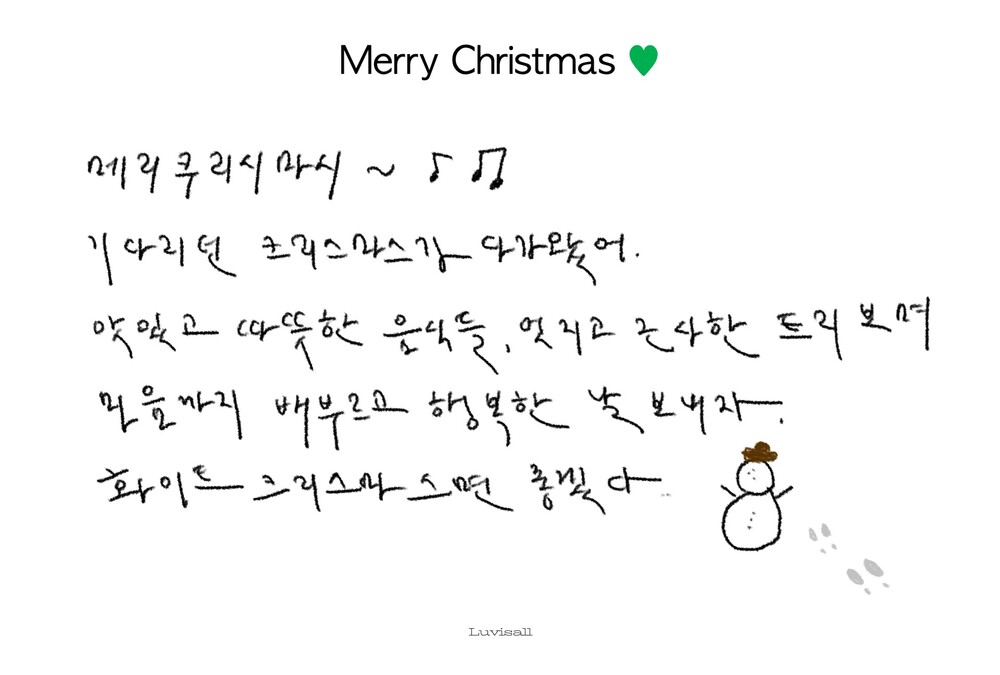 Merry Christmas 💚
메리쿠리시마시 ~ ♪ ♫
기다리던 크리스마스가 다가왔어.
맛있고 따뜻한 음식들, 멋지고 근사한 트리 보며
마음까지 배부르고 행복한 날 보내자.
화이트 크리스마스면 좋겠다..
Luvisall